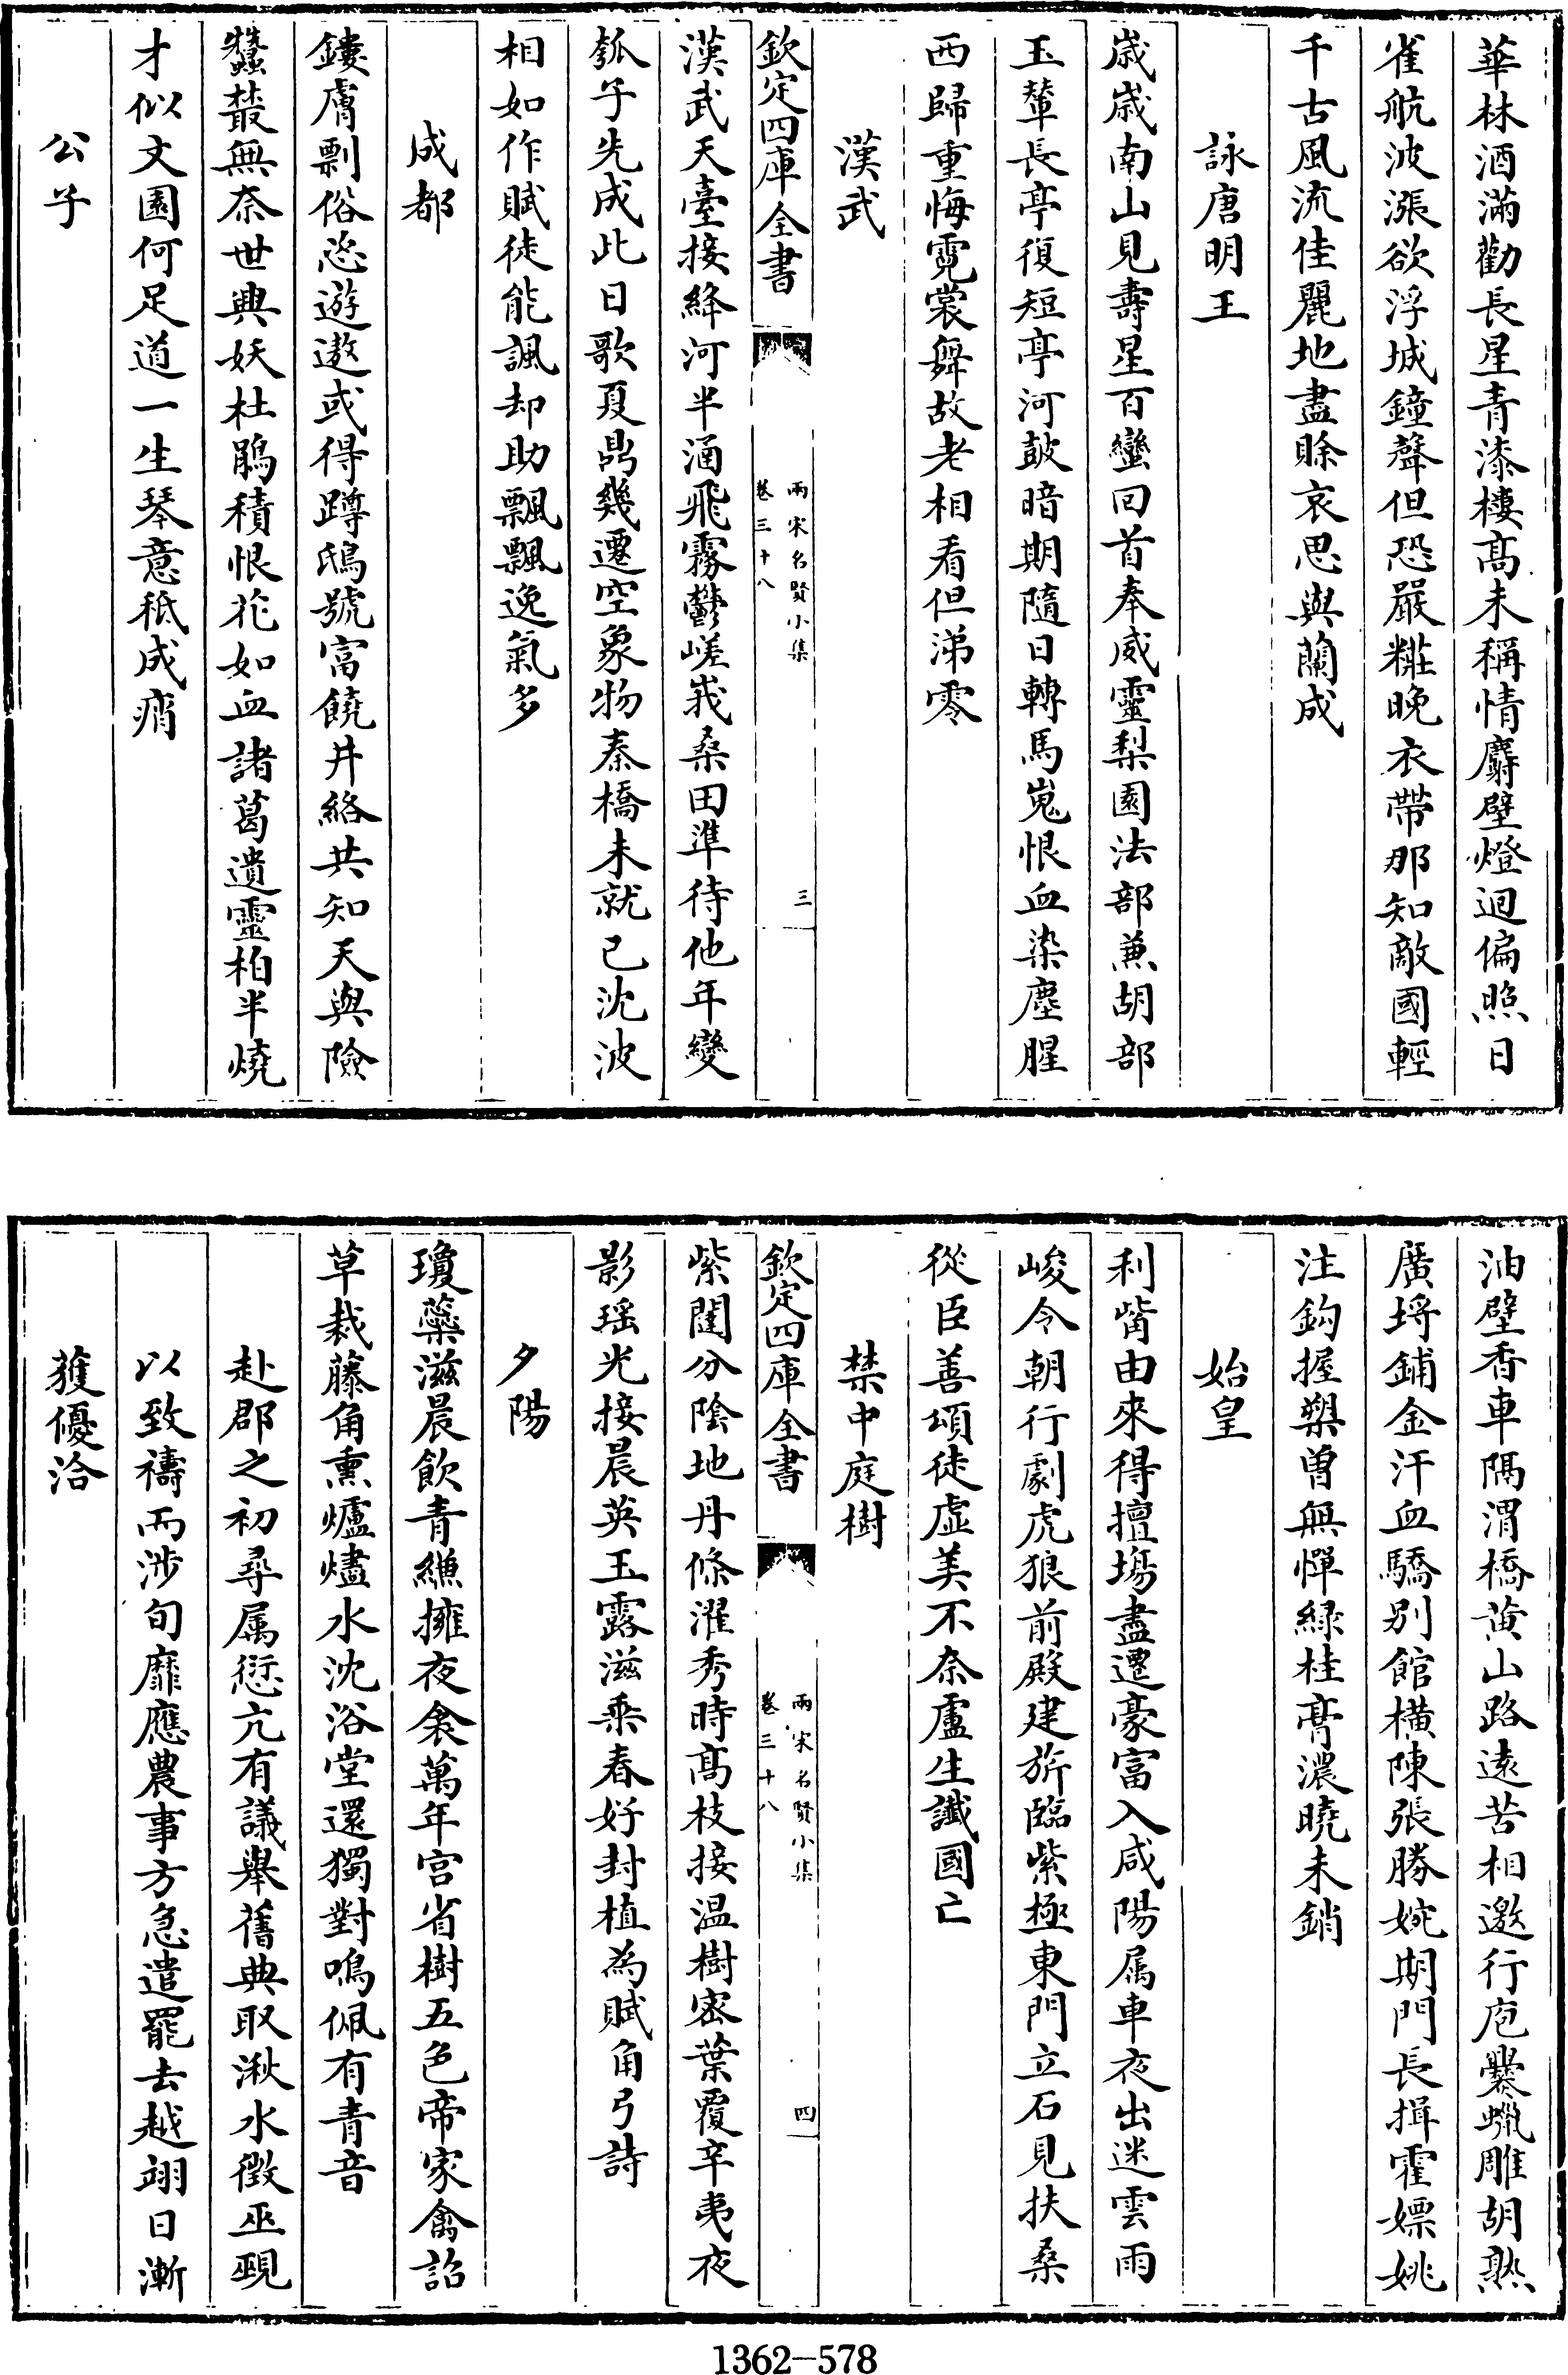 華林酒滿勸長星青漆樓髙未稱情麝壁燈迴偏照日
雀航波漲欲浮城鐘聲但恐嚴糚晚衣帶那知敵國輕
千古風流佳麗地盡賒哀思與蘭成
詠唐明王
歲歲南山見壽星百蠻回首奉威靈梨園法部兼胡部
玉輦長亭復短亭河鼓暗期隨日轉馬嵬恨血染塵腥
西歸重悔霓裳舞故老相看但涕零
漢武
漢武天臺接絳河半涵飛霧鬱嵯峩桑田準待他年變
瓠子先成此日歌夏鼎幾遷空象物秦橋未就已沈波
相如作賦徒能諷却助飄飄逸氣多
成都
鏤膚剽俗恣遊遨或得蹲鴟號富饒井絡共知天與險
蠶叢無奈世興妖杜鵑積恨花如血諸葛遺靈柏半燒
才似文園何足道一生琴意秪成痟
公子
欽定四庫全書
兩宋名賢小集
卷三十八
三
油壁香車隔渭橋黄山路逺苦相邀行庖爨蠟雕胡熟
廣埒鋪金汗血驕别館橫陳張勝婉期門長揖霍嫖姚
注鈎握槊曽無憚緑桂膏濃曉未銷
始皇
利觜由來得擅塲盡遷豪富入咸陽属車夜出迷雲雨
峻令朝行劇虎狼前殿建旂臨紫極東門立石見扶桑
從臣善頌徒虚美不奈盧生讖國亡
禁中庭樹
紫闥分陰地丹條濯秀時髙枝接温樹密葉覆辛夷夜
影瑶光接晨英玉露滋乘春好封植為賦角弓詩
夕陽
瓊蘂滋晨飲青縑擁夜衾萬年宫省樹五色帝家禽詔
草裁藤角熏爐燼水沈浴堂還獨對鳴佩有青音
赴郡之初尋属愆亢有議舉舊典取湫水徴巫覡
以致禱而涉旬靡應農事方急遣罷去越翊日漸
獲優洽
欽定四庫全書
兩宋名賢小集
卷三十八
四
1362-578